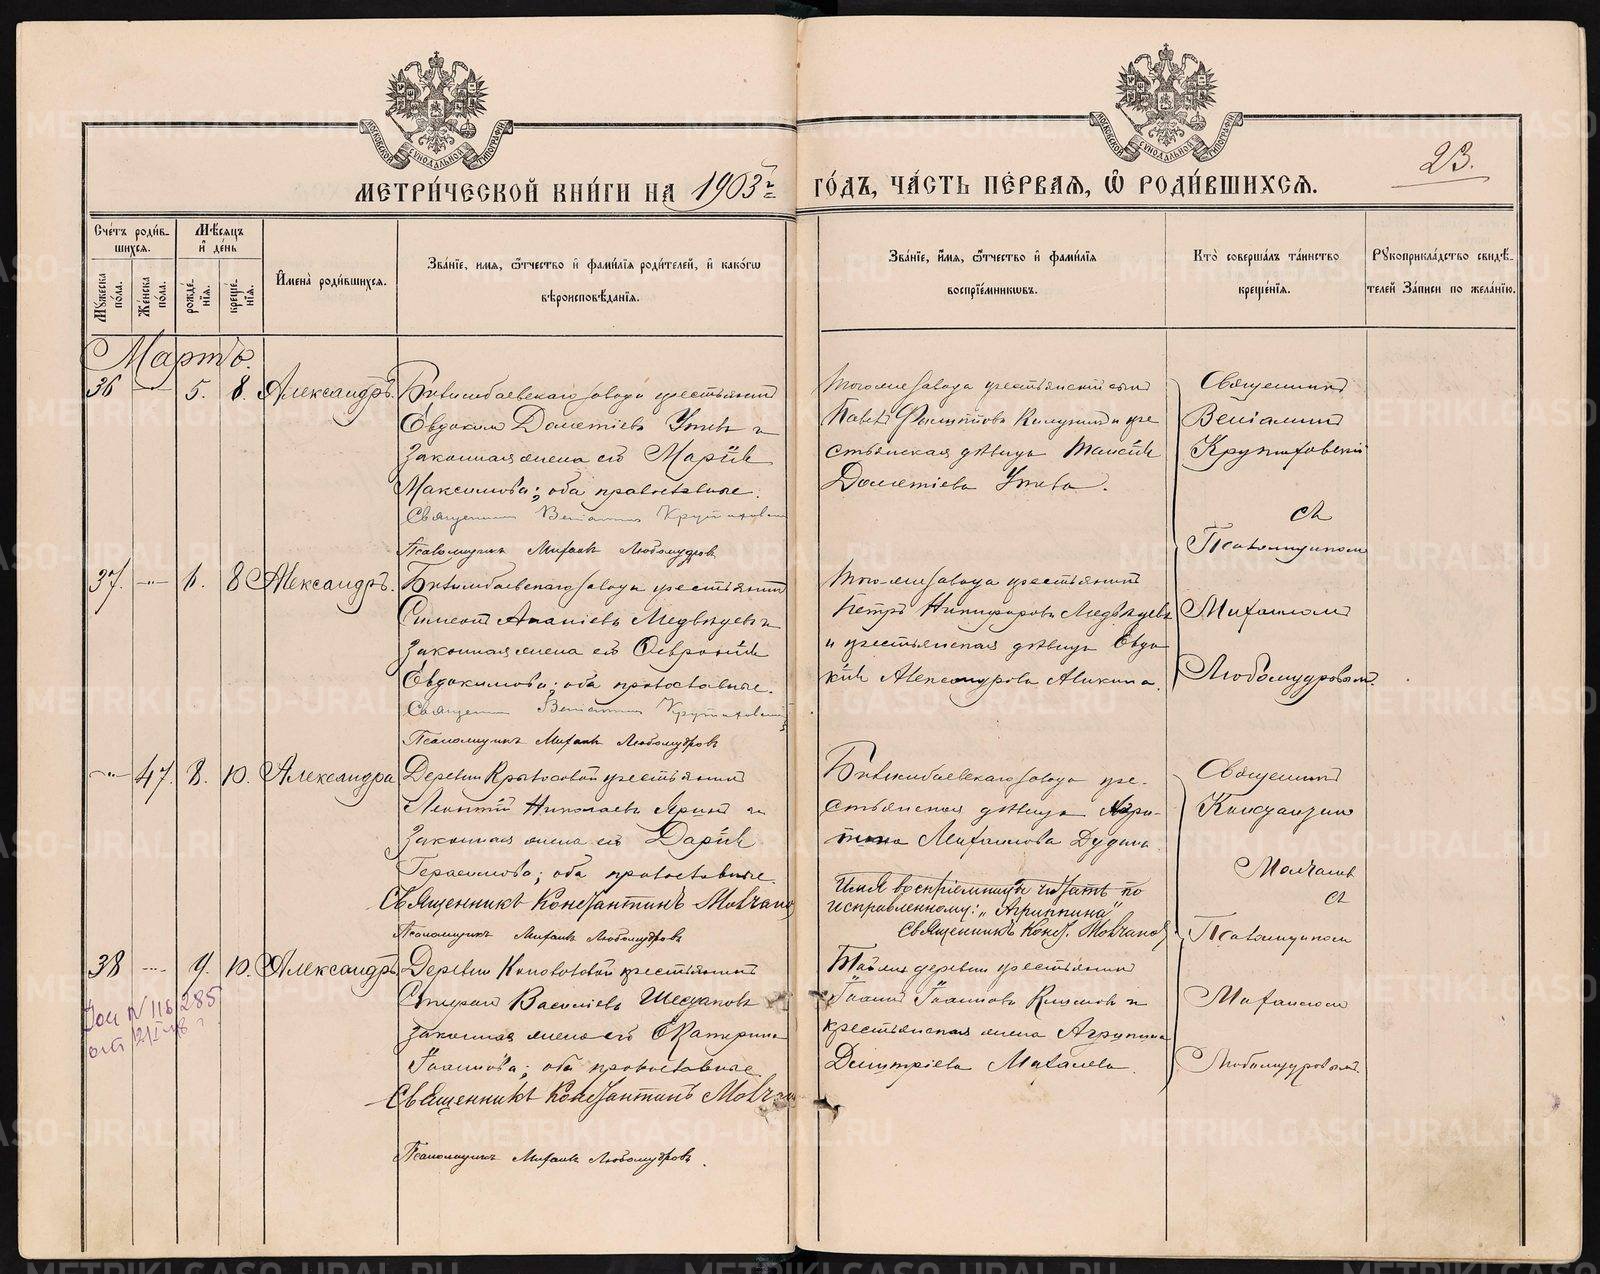 МЕТРИ́ЧЕСКОЙ КНИ́ГИ НА 1903 г.
ГО́ДЪ, ЧА́СТЬ ПЕ́РВАЯ, Ѡ҆ РОДИ́ВШИХСЯ.
23.
МОСКОВСКОЙ СѴНОДАЛЬНОЙ ТИПОГРАФІИ
МОСКОВСКОЙ СѴНОДАЛЬНОЙ ТИПОГРАФІИ
Сче́тъ роди́в-
шихся.
Мѣ́сяцъ
и҆ де́нь
Мꙋ́жеска
по́ла.
Же́нска
по́ла.
рожде́-
нїя.
креще́-
нїя.
И҆мена̀ роди́вшихся.
Зва́нїе, и҆́мя, ѻ҆́тчество и҆ фами́лїя роди́телей, и҆ како́гѡ
вѣроисповѣ́данїя.
Зва́нїе, и҆́мя, ѻ҆́тчество и҆ фами́лїя
воспрїе́мниковъ.
Кто̀ соверша́лъ та́инство
креще́нїя.
Рꙋкоприкла́дство свидѣ́-
телей за́писи по жела́нїю.
Мартъ.
36 — 5. 8. Александръ.
Билимбаевскаго завода крестьянинъ
Евдокимъ Дометіевъ Утевъ и
законная жена его Марія
Максимова; оба православные.
Священникъ Веніаминъ Крутиховскій
Псаломщикъ Михаилъ Любомудровъ
Того-же завода крестьянскій сынъ
Павелъ Филипповъ и кре
стьянская дѣвица Таисія
Дометіева Утева.
Священникъ
Веніаминъ
Крутиховскій
съ
Псаломщикомъ
37. —"— 6. 8 Александръ.
Билимбаевскаго завода крестьянинъ
Симеонъ Ананіевъ Медвѣдевъ и
законная жена его Февронія
Евдокимова; оба православные.
Священникъ Веніаминъ Крутиховскій
Псаломщикъ Михаилъ Любомудровъ
Того-же завода крестьянинъ
Петръ Никифоровъ Медвѣдевъ
и крестьянская дѣвица Евдо
кія Александрова Аликина.
Михаиломъ
Любомудровымъ.
—"— 47. 8. 10. Александра
Деревни Крылосовой крестьянинъ
Леонтій Николаевъ Яринъ и
законная жена его Дарія
Герасимова; оба православные.
Священникъ Константинъ Молчановъ
Псаломщикъ Михаилъ Любомудровъ
Билимбаевскаго завода кре-
стьянская дѣвица Агри-
пина Михаилова Дудина.
Имя воспріемницы читать по
исправленному: "Агриппина"
Священникъ Конст. Молчановъ
Священникъ
Константинъ
Молчановъ
съ
Псаломщикомъ
38 —"— 9. 10. Александръ
Деревни Коноваловой крестьянинъ
Спиридонъ Василіевъ
законная жена его Екатерина
Іоаннова; оба православные
Священникъ Константинъ Молчановъ
Псаломщикъ Михаилъ Любомудровъ.
Той же деревни крестьянинъ
Іоаннъ Іоанновъ Климовъ и
крестьянская жена Агрипина
Димитріева Махалева.
Михаиломъ
Любомудровымъ.
N 118285
METRIKI.GASO-URAL.RU